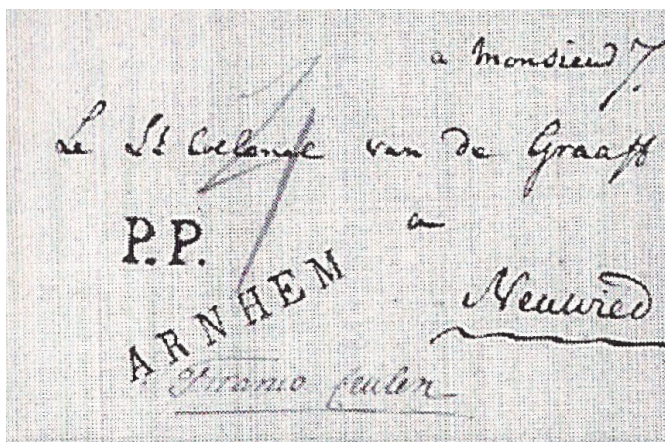 a Monsieur
Le Lt Collonel van de Graaff
P.P.
a
ARNHEM
Neuwied
Franco Ceulen